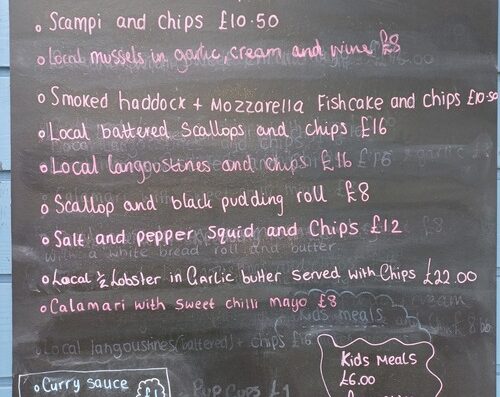 Scampi and Chips £10.50
Local mussels in garlic, cream and wine £8
Smoked haddock + Mozzarella Fishcake and chips £10.50
Local battered scallops and chips £16
Local langoustines and chips £16
Scallop and black pudding roll £8
Salt and pepper squid and Chips £12
Local ½ Lobster in Garlic butter served with Chips £22.00
Calamari with sweet chilli mayo £8
Kids meals
Local langoustines (battered) + chips £16
Kids Meals
£6.00
Curry sauce £1
Pup Cups £1